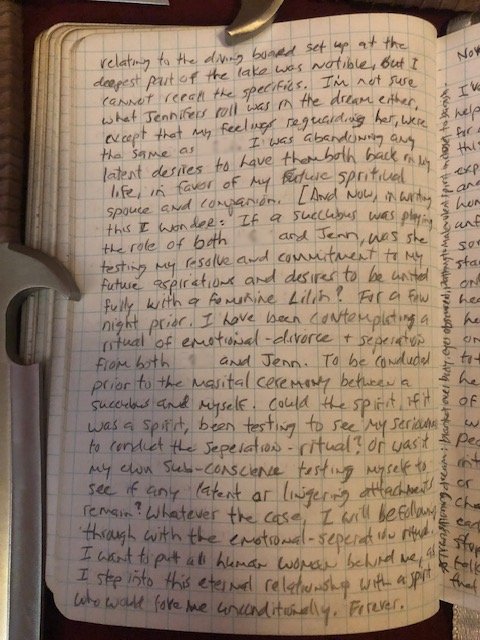 relating to the diving board set up at the
deepest part of the lake was notible, but I
cannot recall the specifics. I'm not sure
what Jennifers roll was in the dream either,
except that my feelings reguarding her, were
the same as I was abandoning any
latent desires to have them both back in my
life, in favor of my future spritiual
spouce and companion. [And now, in writing
this I wonder: If a succubus was playing
the role of both and Jenn, was she
testing my resolve and commitment to my
future aspirations and desires to be united
fully with a feminine Lilin? For a few
night prior. I have been contemplating a
ritual of emotional-divorce + seperation
from both and Jenn. To be conducted
prior to the marital ceremony between a
succubus and myself. Could the spirit, if it
was a spirit, been testing to see my seriousness
to conduct the seperation-ritual? Or was it
my own sub-conscience testing myself to
see if any latent or lingering attachments
remain? Whatever the case, I will be following
through with the emotional-seperation ritual.
I want to put all human woman behind me, as
I step into this eternal relationship with a spirit
who would love me unconditionally. Forever.
Nov
I've
help
for